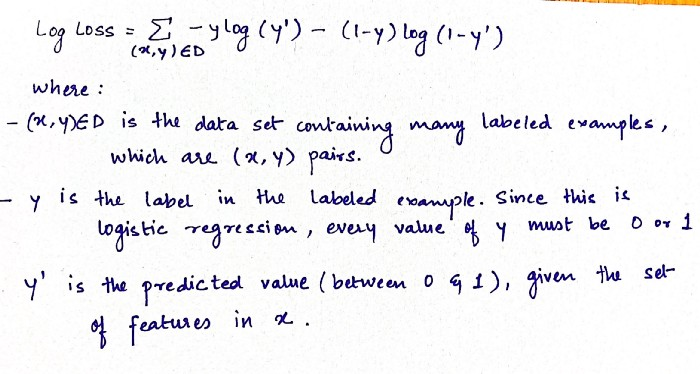 Log Loss = Σ -ylog(y') - (1-y) log (1-y')
(x,y)∈D
where :
- (x,y)∈D is the data set containing many labeled examples,
which are (x,y) pairs.
- y is the label in the labeled example. Since this is
logistic regression, every value of y must be 0 or 1
y' is the predicted value (between 0 & 1), given the set
of features in x.